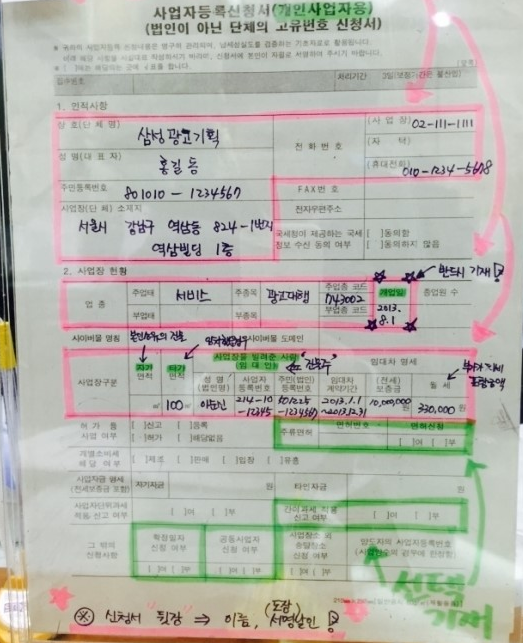 사업자등록신청서(개인사업자용)
(법인이 아닌 단체의 고유번호 신청서)
접수번호
처리기간 3일(보정기간은 불산입)
1. 인적사항
상호(단체명) 삼성광고기획
전화번호
(사업장) 02-111-1111
(자 택)
(휴대전화) 010-1234-5678
성명(대표자) 홍길동
주민등록번호 801010-1234567
FAX번호
사업장(단체) 소재지
서울시 강남구 역삼동 824-1번지
역삼빌딩 1층
전자우편주소
국세청이 제공하는 국세정보 수신 동의 여부
[ ]동의함
[ ]동의하지 않음
2. 사업장 현황
반드시 기재
업 종
주업태 서비스
주종목 광고대행
주업종 코드 743002
개업일 2013. 8. 1
종업원 수
부업태
부종목
부업종 코드
사이버몰 명칭
사이버몰 도메인
사업장구분
자가 면적
타가 면적
사업장을 빌려준 사람 (임 대 인)
임대차 명세
성 명(법인명)
사업자등록번호
주민(법인)등록번호
임대차 계약기간
(전세)보증금
월 세
㎡ 100㎡ 이순신 214-10-12345
2013.1.1 ~2013.12.31
10,000,000원
330,000원
허가 등 사업 여부
[ ]신고 [ ]등록
[ ]허가 [ ]해당없음
주류면허
면허번호
면허신청
[ ]여 [ ]부
개별소비세 해당 여부
[ ]제조 [ ]판매 [ ]입장 [ ]유흥
사업자금 명세(전세보증금 포함)
자기자금 원
타인자금 원
사업자단위과세 적용 신고 여부
[ ]여 [ ]부
간이과세 적용 신고 여부
[ ]여 [ ]부
그 밖의 신청사항
확정일자 신청 여부
공동사업자 신청 여부
사업장소 외 송달장소 신청 여부
양도자의 사업자등록번호
[ ]여 [ ]부
[ ]여 [ ]부
[ ]여 [ ]부
선택
기재
※ 신청서 "뒷장" ⇒ 이름, (도장) 서명날인